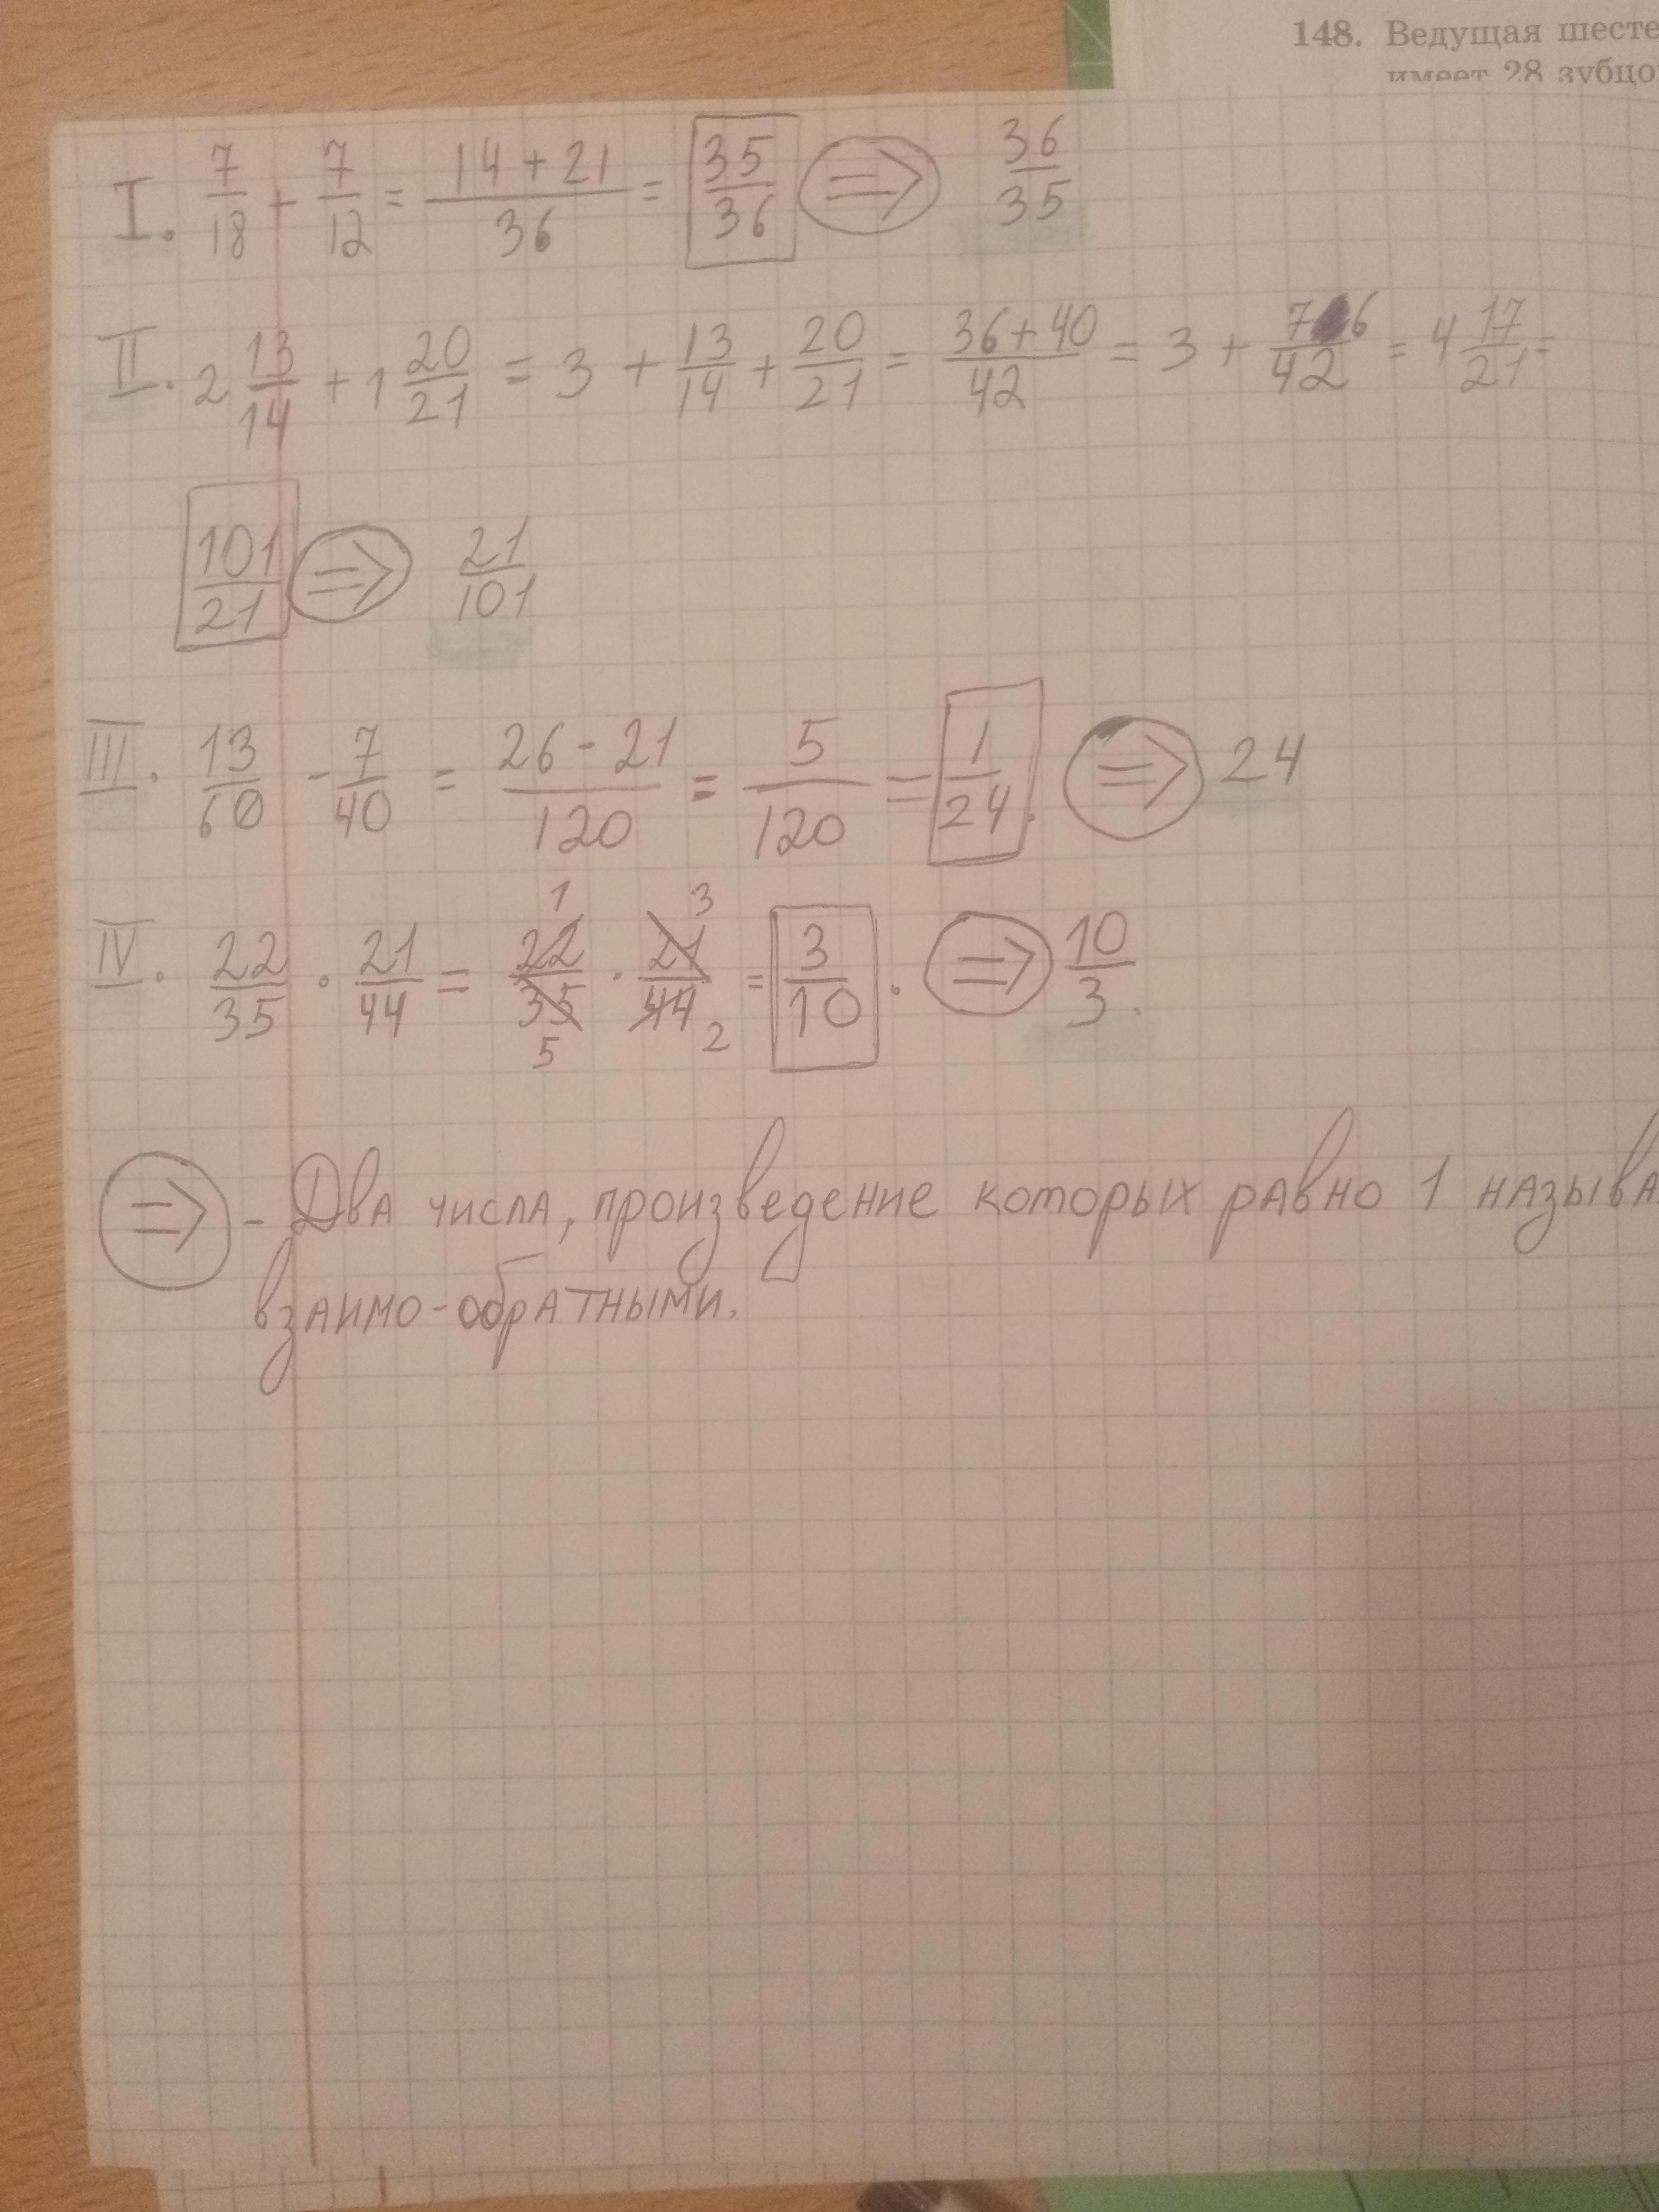 148. Ведущая шесте
имеет 28 зубцо
I. 7/18 + 7/12 = (14 + 21)/36 = 35/36 ⇒ 36/35
II. 2 13/14 + 1 20/21 = 3 + 13/14 + 20/21 = (36 + 40)/42 = 3 + 76/42 = 4 17/21 =
101/21 ⇒ 21/101
III. 13/60 - 7/40 = (26 - 21)/120 = 5/120 = 1/24. ⇒ 24
1 3
IV. 22/35 · 21/44 = 22/35 · 21/44 = 3/10. ⇒ 10/3.
5 2
⇒ - Два числа, произведение которых равно 1 называ
взаимо-обратными.